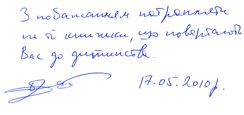 З побажанням потрапляти
на ті книжки, що повертають
Вас до дитинства.
17.05.2010р.